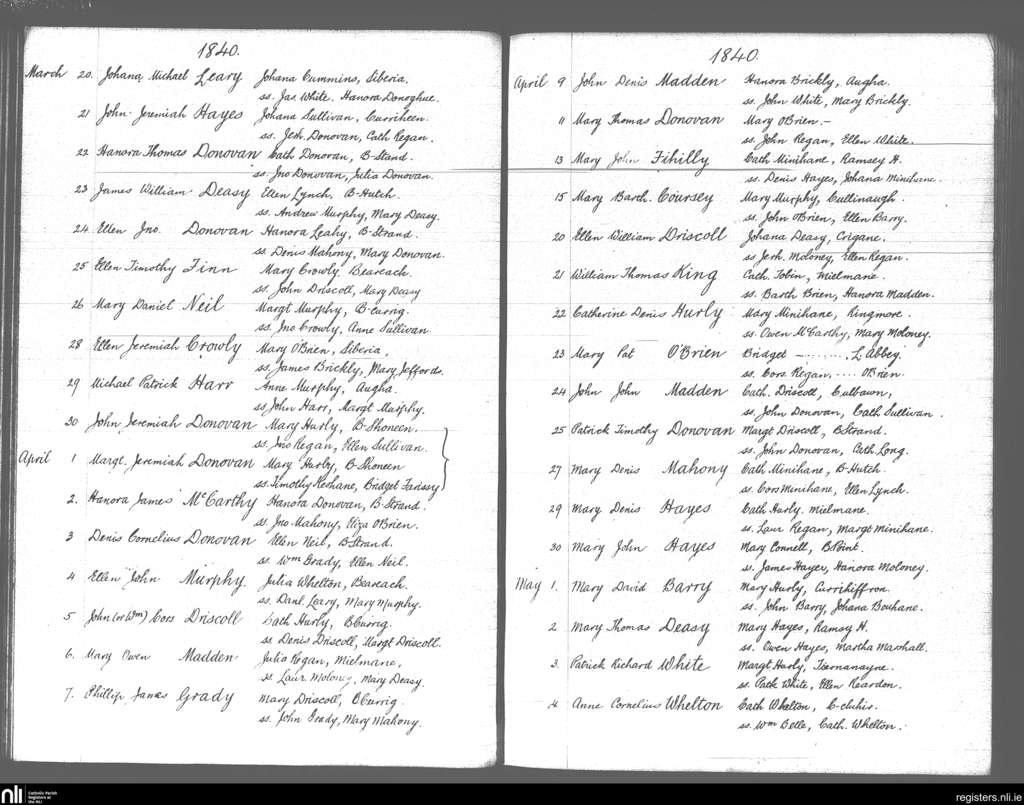 1840.
March 20. Johana Michael Leary Johana Cummins, Siberia.
ss. Jas. White. Hanora Donoghue.
21 John Jeremiah Hayes Johana Sullivan, Curriheen.
ss. Jerh. Donovan, Cath Regan.
22 Hanora Thomas Donovan Cath Donovan, B-Stand.
ss. Jno Donovan, Julia Donovan.
23 James William Deasy Ellen Lynch, B-Hutch.
ss. Andrew Murphy, Mary Deasy.
24 Ellen Jno. Donovan Hanora Leahy, B-Strand.
ss Denis Mahony, Mary Donovan.
25 Ellen Timothy Finn Mary Crowly. Beareach.
ss. John Driscoll, Mary Deasy
26 Mary Daniel Neil Margt Murphy, B-Currig.
ss. Jno Crowly, Anne Sullivan
28 Ellen Jeremiah Crowly Mary O'Brien, Siberia.
ss. James Brickly, Mary Jeffords.
29 Michael Patrick Harr Anne Murphy, Augha.
ss John Harr, Margt Murphy.
30 John Jeremiah Donovan Mary Hurly, B-Shoneen.
ss. Jno Regan, Ellen Sullivan.
April 1 Margt. Jeremiah Donovan Mary Hurly, B-Shoneen
ss. Timothy Keohane, Bridget Farissy
2. Hanora James McCarthy Hanora Donovan, B-Strand.
ss. Jno Mahony, Eliza O'Brien.
3 Denis Cornelius Donovan Ellen Neil, BStrand.
ss. Wm Grady, Ellen Neil.
4 Ellen John Murphy Julia Whelton, Beareach.
ss. Danl. Leary, Mary Murphy.
5 John (or Wm) Cors Driscoll Cath Hurly, BCurrig.
ss. Denis Driscoll, Margt Driscoll.
6. Mary Owen Madden Julia Regan, Mielmane.
ss. Laur. Molony, Mary Deasy.
7. Phillip James Grady Mary Driscoll, BCurrig.
ss. John Grady, Mary Mahony.
1840.
April 9 John Denis Madden Hanora Brickly, Augha.
ss. John White, Mary Brickly.
11 Mary Thomas Donovan Mary O'Brien.—
ss. John Regan, Ellen White.
13 Mary John Fihilly Cath Minihane, Ramsey H.
ss. Denis Hayes, Johana Minihane.
15 Mary Barth. Coursey Mary Murphy, Cullinaugh.
ss. John O'Brien, Ellen Barry.
20 Ellen William Driscoll Johana Deasy, Crigane.
ss. Jerh. Moloney, Ellen Regan.
21 William Thomas King Cath. Tobin, Mielmane.
ss. Barth Brien, Hanora Madden.
22 Catherine Denis Hurly Mary Minihane, Ringmore.
ss. Owen McCarthy, Mary Moloney.
23 Mary Pat O'Brien Bridget —........ L, Abbey.
ss. Cors. Regan, .... O'Brien.
24 John John Madden Cath. Driscoll, Culbawn,
ss. John Donovan, Cath Sullivan.
25 Patrick Timothy Donovan Margt Driscoll, BStrand.
ss. John Donovan, Cath Long.
27 Mary Denis Mahony Cath Minihane, B-Hutch.
ss. Cors Minihane, Ellen Lynch.
29 Mary Denis Hayes Cath Hurly. Mielmane.
ss. Laur Regan, Margt Minihane.
30 Mary John Hayes Mary Connell, BPoint.
ss. James Hayes, Hanora Moloney.
May 1. Mary David Barry Mary Hurly, Currihiffron.
ss. John Barry, Johana Bouhane.
2 Mary Thomas Deasy Mary Hayes, Ramsy H.
ss. Owen Hayes, Martha Marshall.
3. Patrick Richard White Margt Hurly, Tiernanayne.
ss. Patk White, Ellen Reardon.
4 Anne Cornelius Whelton Cath Whelton,
ss. Wm Belle, Cath. Whelton.
nli Catholic Parish Registers at the NLI
registers.nli.ie